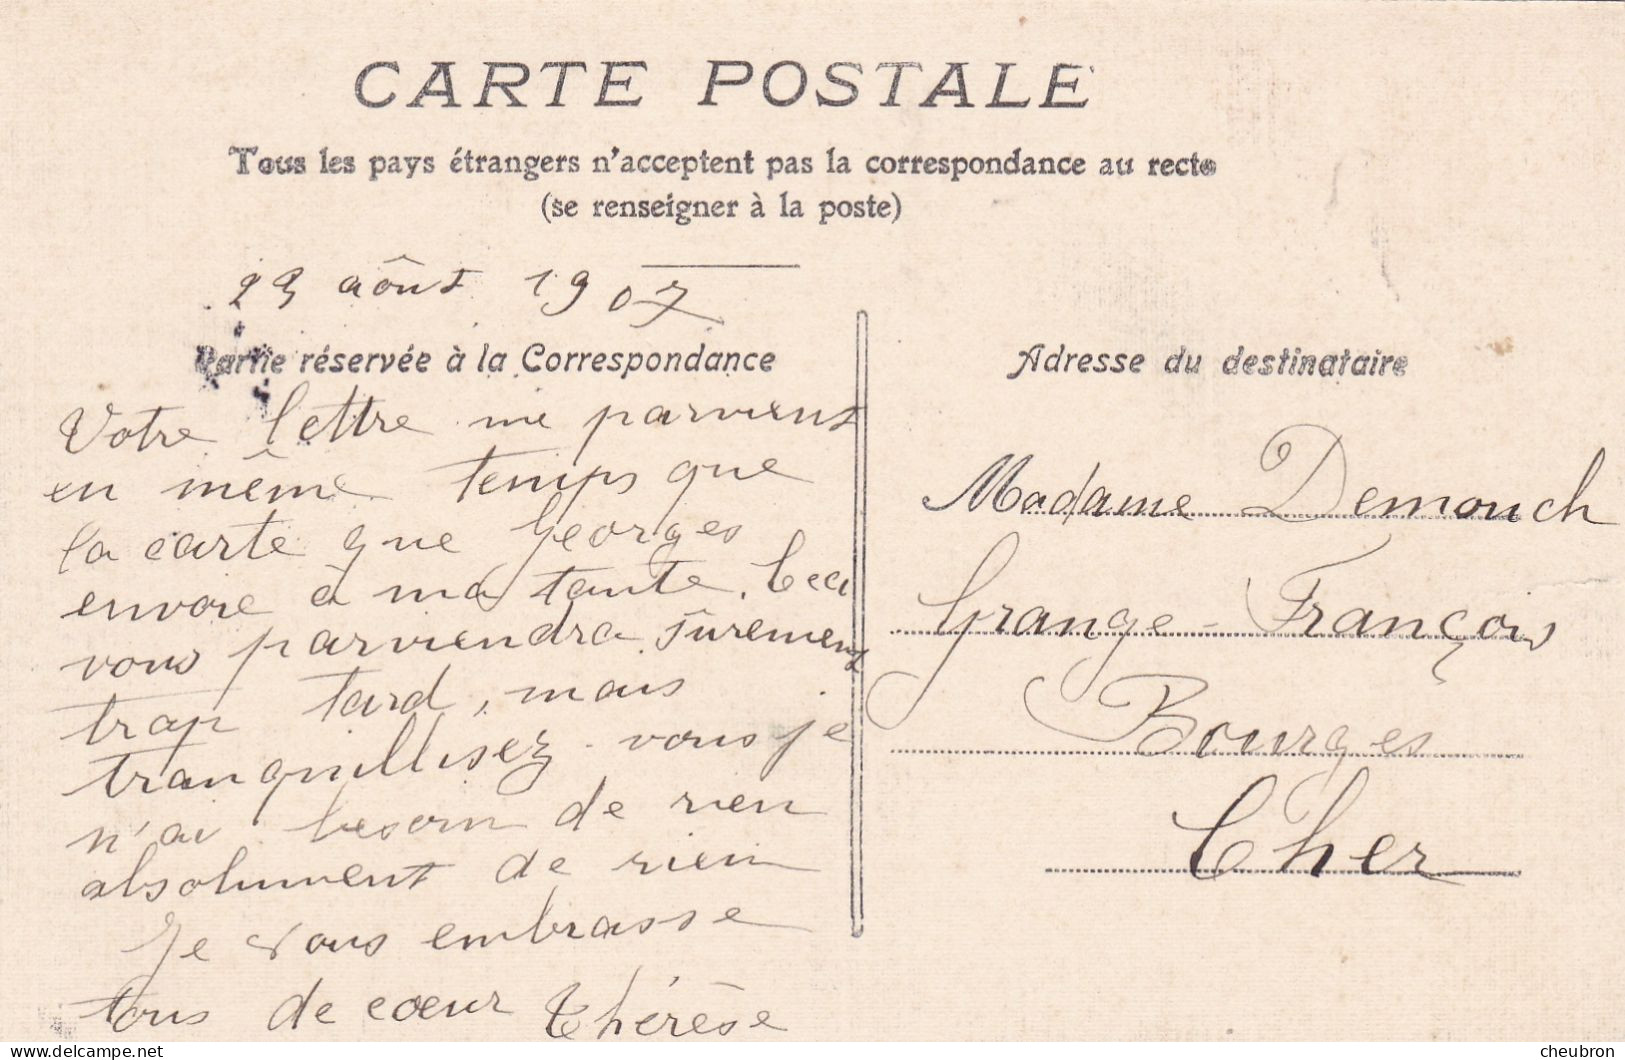 CARTE POSTALE
Tous les pays étrangers n'acceptent pas la correspondance au recto
(se renseigner à la poste)
23 aôut 1907
Partie réservée à la Correspondance
Votre lettre me parvient
en même temps que
la carte que Georges
envoie à ma tante. Ceci
vous parviendra sûrement
trop tard, mais
tranquillisez-vous je
n'ai besoin de rien
absolument de rien
Je vous embrasse
tous de coeur Thérèse
Adresse du destinataire
Madame Demouch
Grange-François
Bourges
Cher
cheubron @ delcampe.net